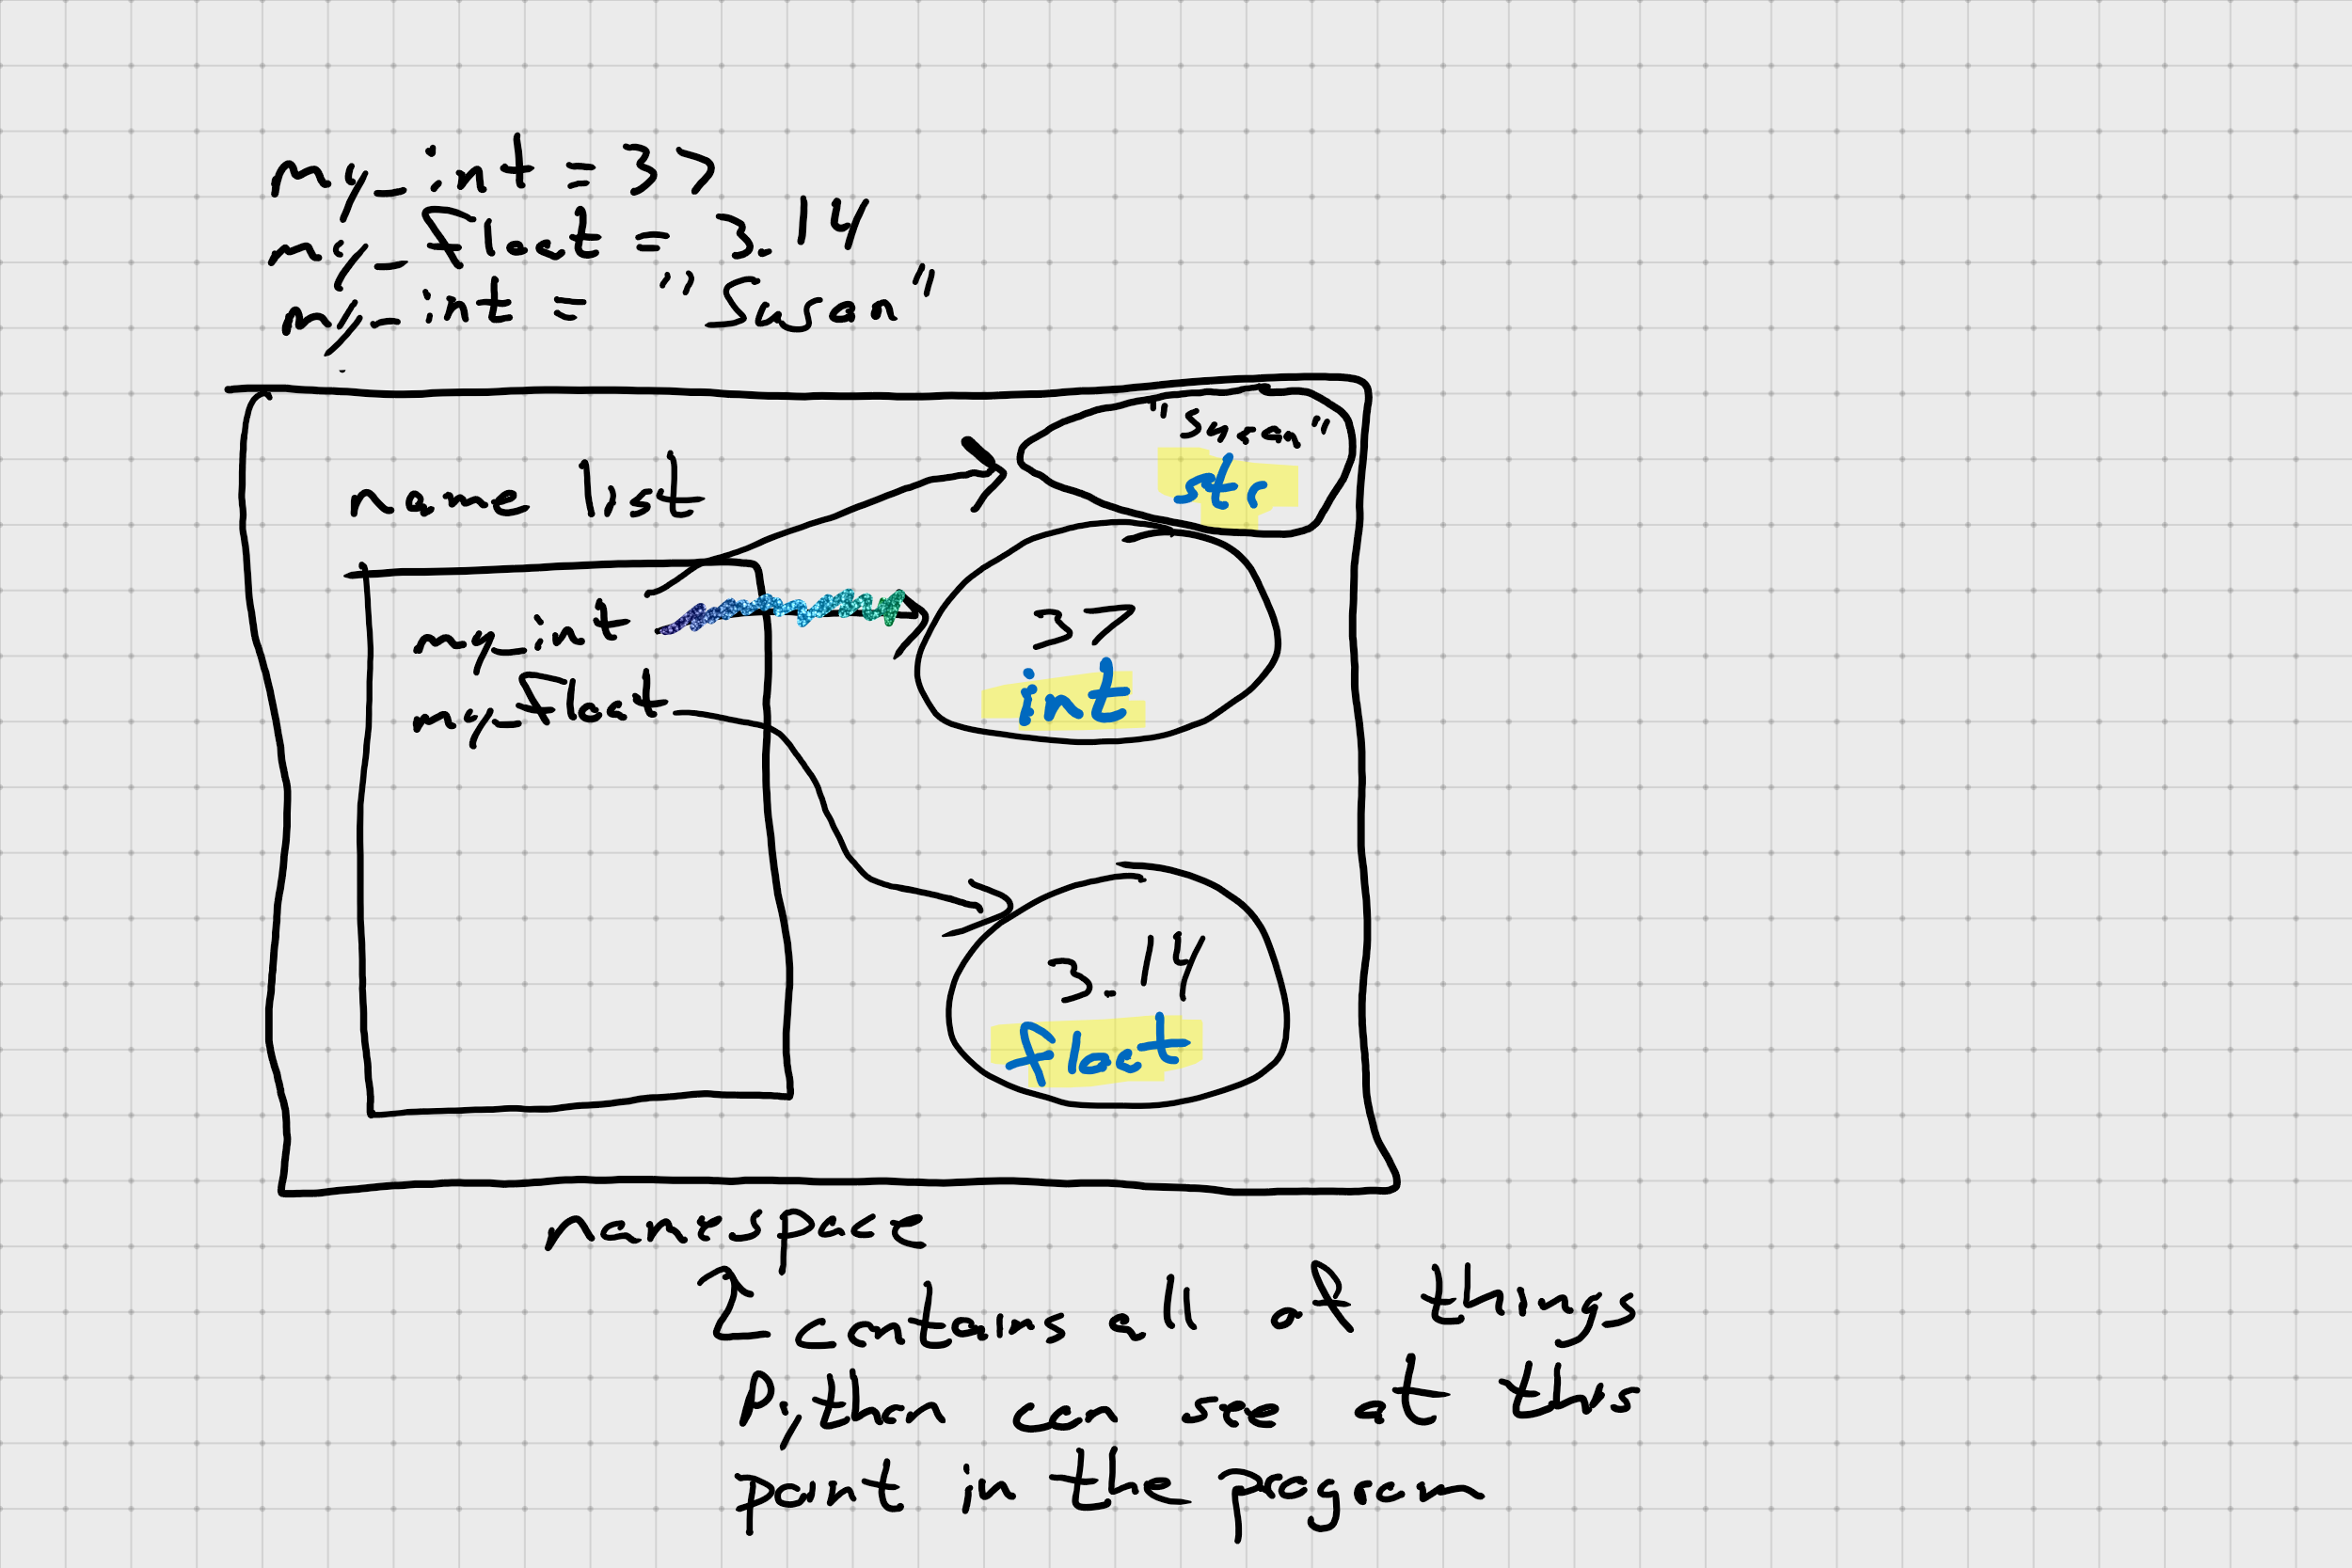 my_int = 37
my_float = 3.14
my_int = "Susan"
name list
"Susan"
str
my_int
37
int
my_float
3.14
float
namespace
contains all of things
Python can see at this
point in the program